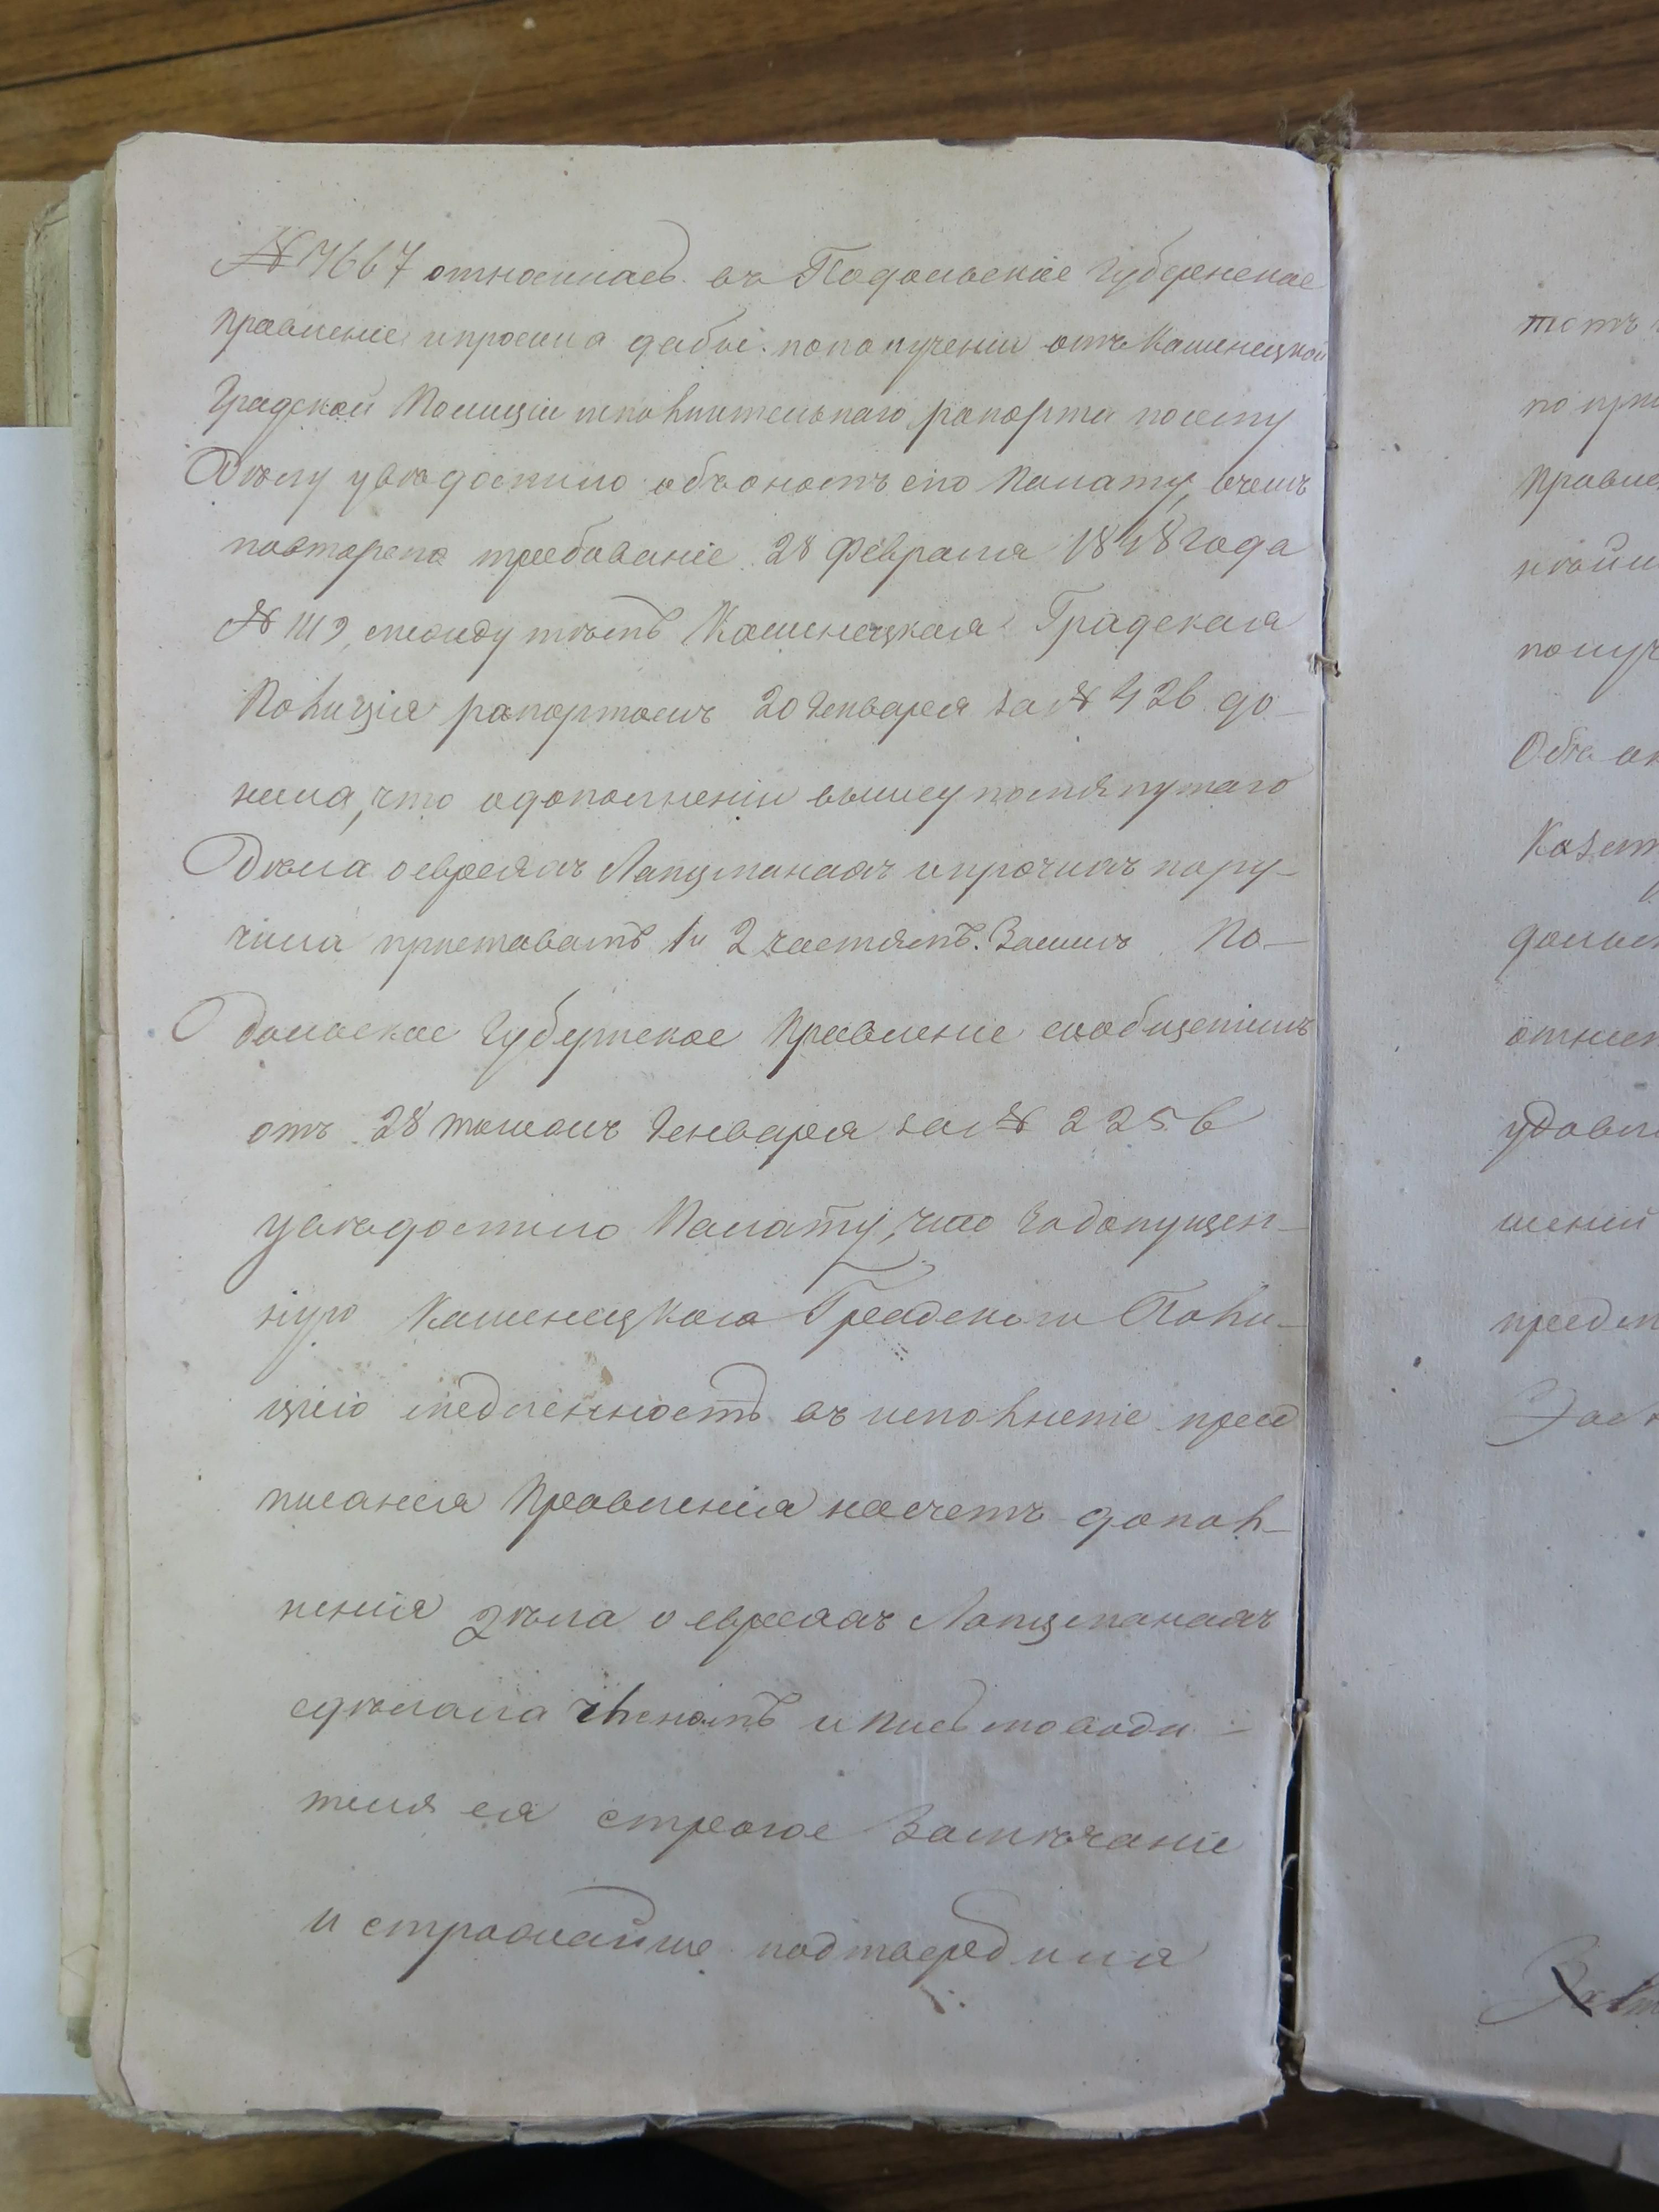 № 7667 относилась въ Подольскіе Губернское
правленіе и просила дабы по получении отъ Каменецкой
Градской Полиціи исполнительнаго рапорта по сему
Дѣлу увѣдомило объ ономъ сію Палату, о чемъ
повторено требованіе 28 Февраля 1848 года
№ 1119, между тѣмъ Каменецкая Градская
Полиція рапортомъ 20 Генваря за № 426 до-
несла, что о дополненіи вышеупомянутаго
Дѣла о евреяхъ Лапцманахъ и прочихъ пору-
чила приставамъ 1 и 2 частямъ. За симъ По-
дольское Губернское Правленіе сообщеніемъ
отъ 28 Генваря за № 2256
увѣдомило Палату, что за допущен-
ную Каменецкою Градскою Поли-
ціею медленность въ исполненіе пред
писанія Правленія насчетъ допол-
ненія дѣла о евреяхъ Лапцманахъ
сдѣлала членамъ и письмоводи-
теля ея строгое замѣчаніе
и строжайше подтвердила
тотъ
по
Правле
получ
Объ
Казен
удовле
шеній
предст